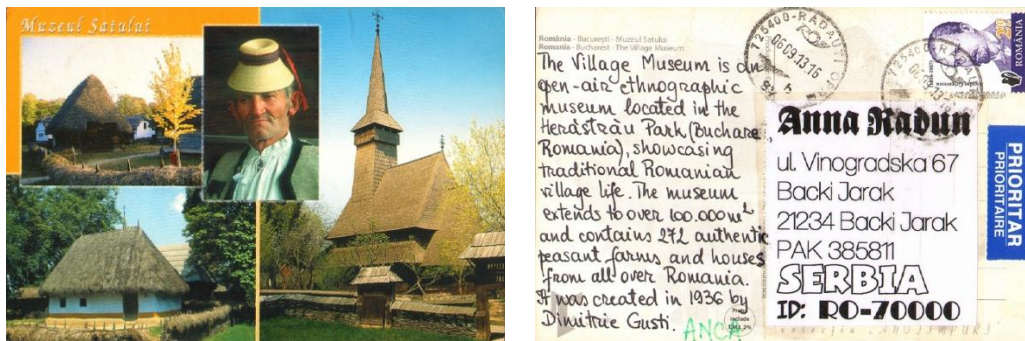 Muzeul Satului
România - Bucureşti - Muzeul Satului
Romania - Bucharest - The Village Museum
The Village Museum is an
open-air ethnographic
museum located in the
Herăstrău Park (Buchare
Romania), showcasing
traditional Romanian
village life. The museum
extends to over 100.000m²
and contains 272 authentic
peasant farms and houses
from all over Romania.
It was created in 1936 by
Dimitrie Gusti. ANCA
725400-RADAUTI
06.09.13.16
ROMÂNIA
Anna Radun
ul. Vinogradska 67
Backi Jarak
21234 Backi Jarak
PAK 385811
SERBIA
ID: RO-70000
PRIORITAR
PRIORITAIRE